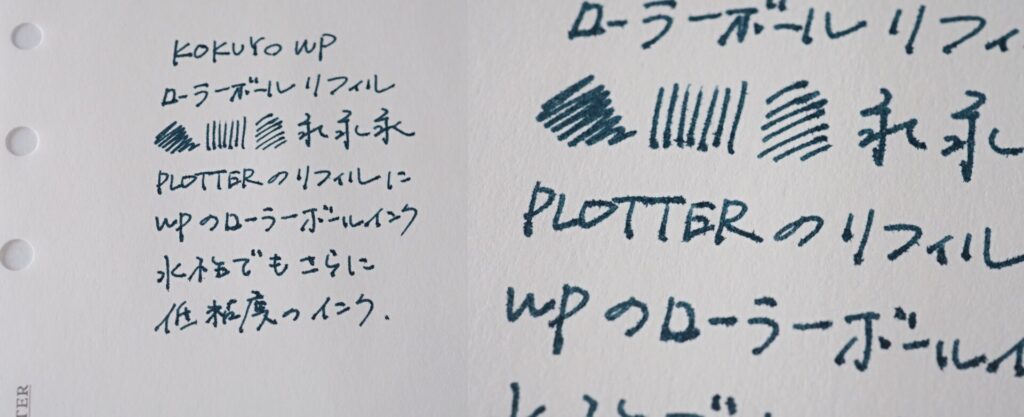 KOKUYO WP
ローラーボール リフィル
永 永 永
PLOTTERのリフィルに
WPのローラーボールインク
水性でもさらに
低粘度のインク.
TER
ローラーボール リフィ
永 永
PLOTTERのリフィル
WPのローラーボールイ